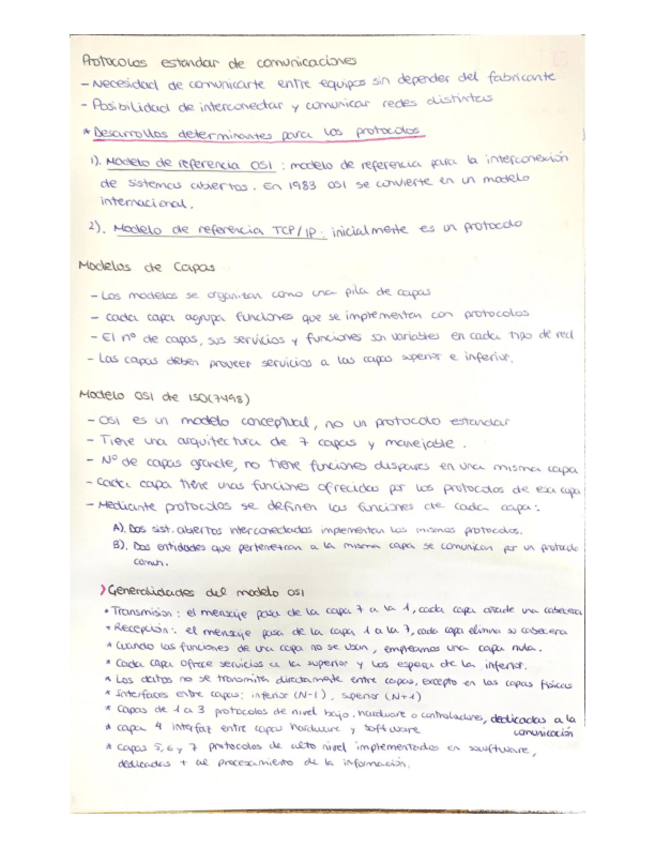 Protocolos estandar de comunicaciones
- Necesidad de comunicarte entre equipos sin depender del fabricante
- Posibilidad de interconectar y comunicar redes distintas
* Desarrollos determinantes para los protocolos
1). Modelo de referencia OSI : modelo de referencia para la interconexión
de sistemas abiertos. En 1983 OSI se convierte en un modelo
internacional.
2). Modelo de referencia TCP/IP: inicialmente es un protocolo
Modelos de Capas
- Los modelos se organizan como una pila de capas
- cada capa agrupa funciones que se implementan con protocolos
- El nº de capas, sus servicios y funciones son variables en cada tipo de red
- Las capas deben proveer servicios a las capas superior e inferior.
Modelo OSI de ISO(7498)
- OSI es un modelo conceptual, no un protocolo estandar
- Tiene una arquitectura de 7 capas y manejable.
- Nº de capas grande, no tiene funciones dispares en una misma capa
- Cada capa tiene unas funciones ofrecidas por los protocolos de esa capa
- Mediante protocolos se definen las funciones de cada capa:
A). Dos sist. abiertos interconectados implementan los mismos protocolos.
B). Dos entidades que pertenezcan a la misma capa se comunican por un protocolo
comun.
> Generalidades del modelo OSI
* Transmision: el mensaje pasa de la capa 7 a la 1, cada capa añade una cabecera
* Recepción: el mensaje pasa de la capa 1 a la 7, cada capa elimina su cabecera
* Cuando las funciones de una capa no se usan, empleamos una capa nula.
* Cada capa ofrece servicios a la superior y los espera de la inferior.
* Los datos no se transmiten directamente entre capas, excepto en las capas físicas
* Interfaces entre capas: inferior (N-1), superior (N+1)
* Capas de 1 a 3 protocolos de nivel bajo, hardware o controladores, dedicadas a la
comunicación
* capa 4 interfaz entre capas hardware y software
* capas 5, 6 y 7 protocolos de alto nivel implementados en software,
dedicados + al procesamiento de la información.